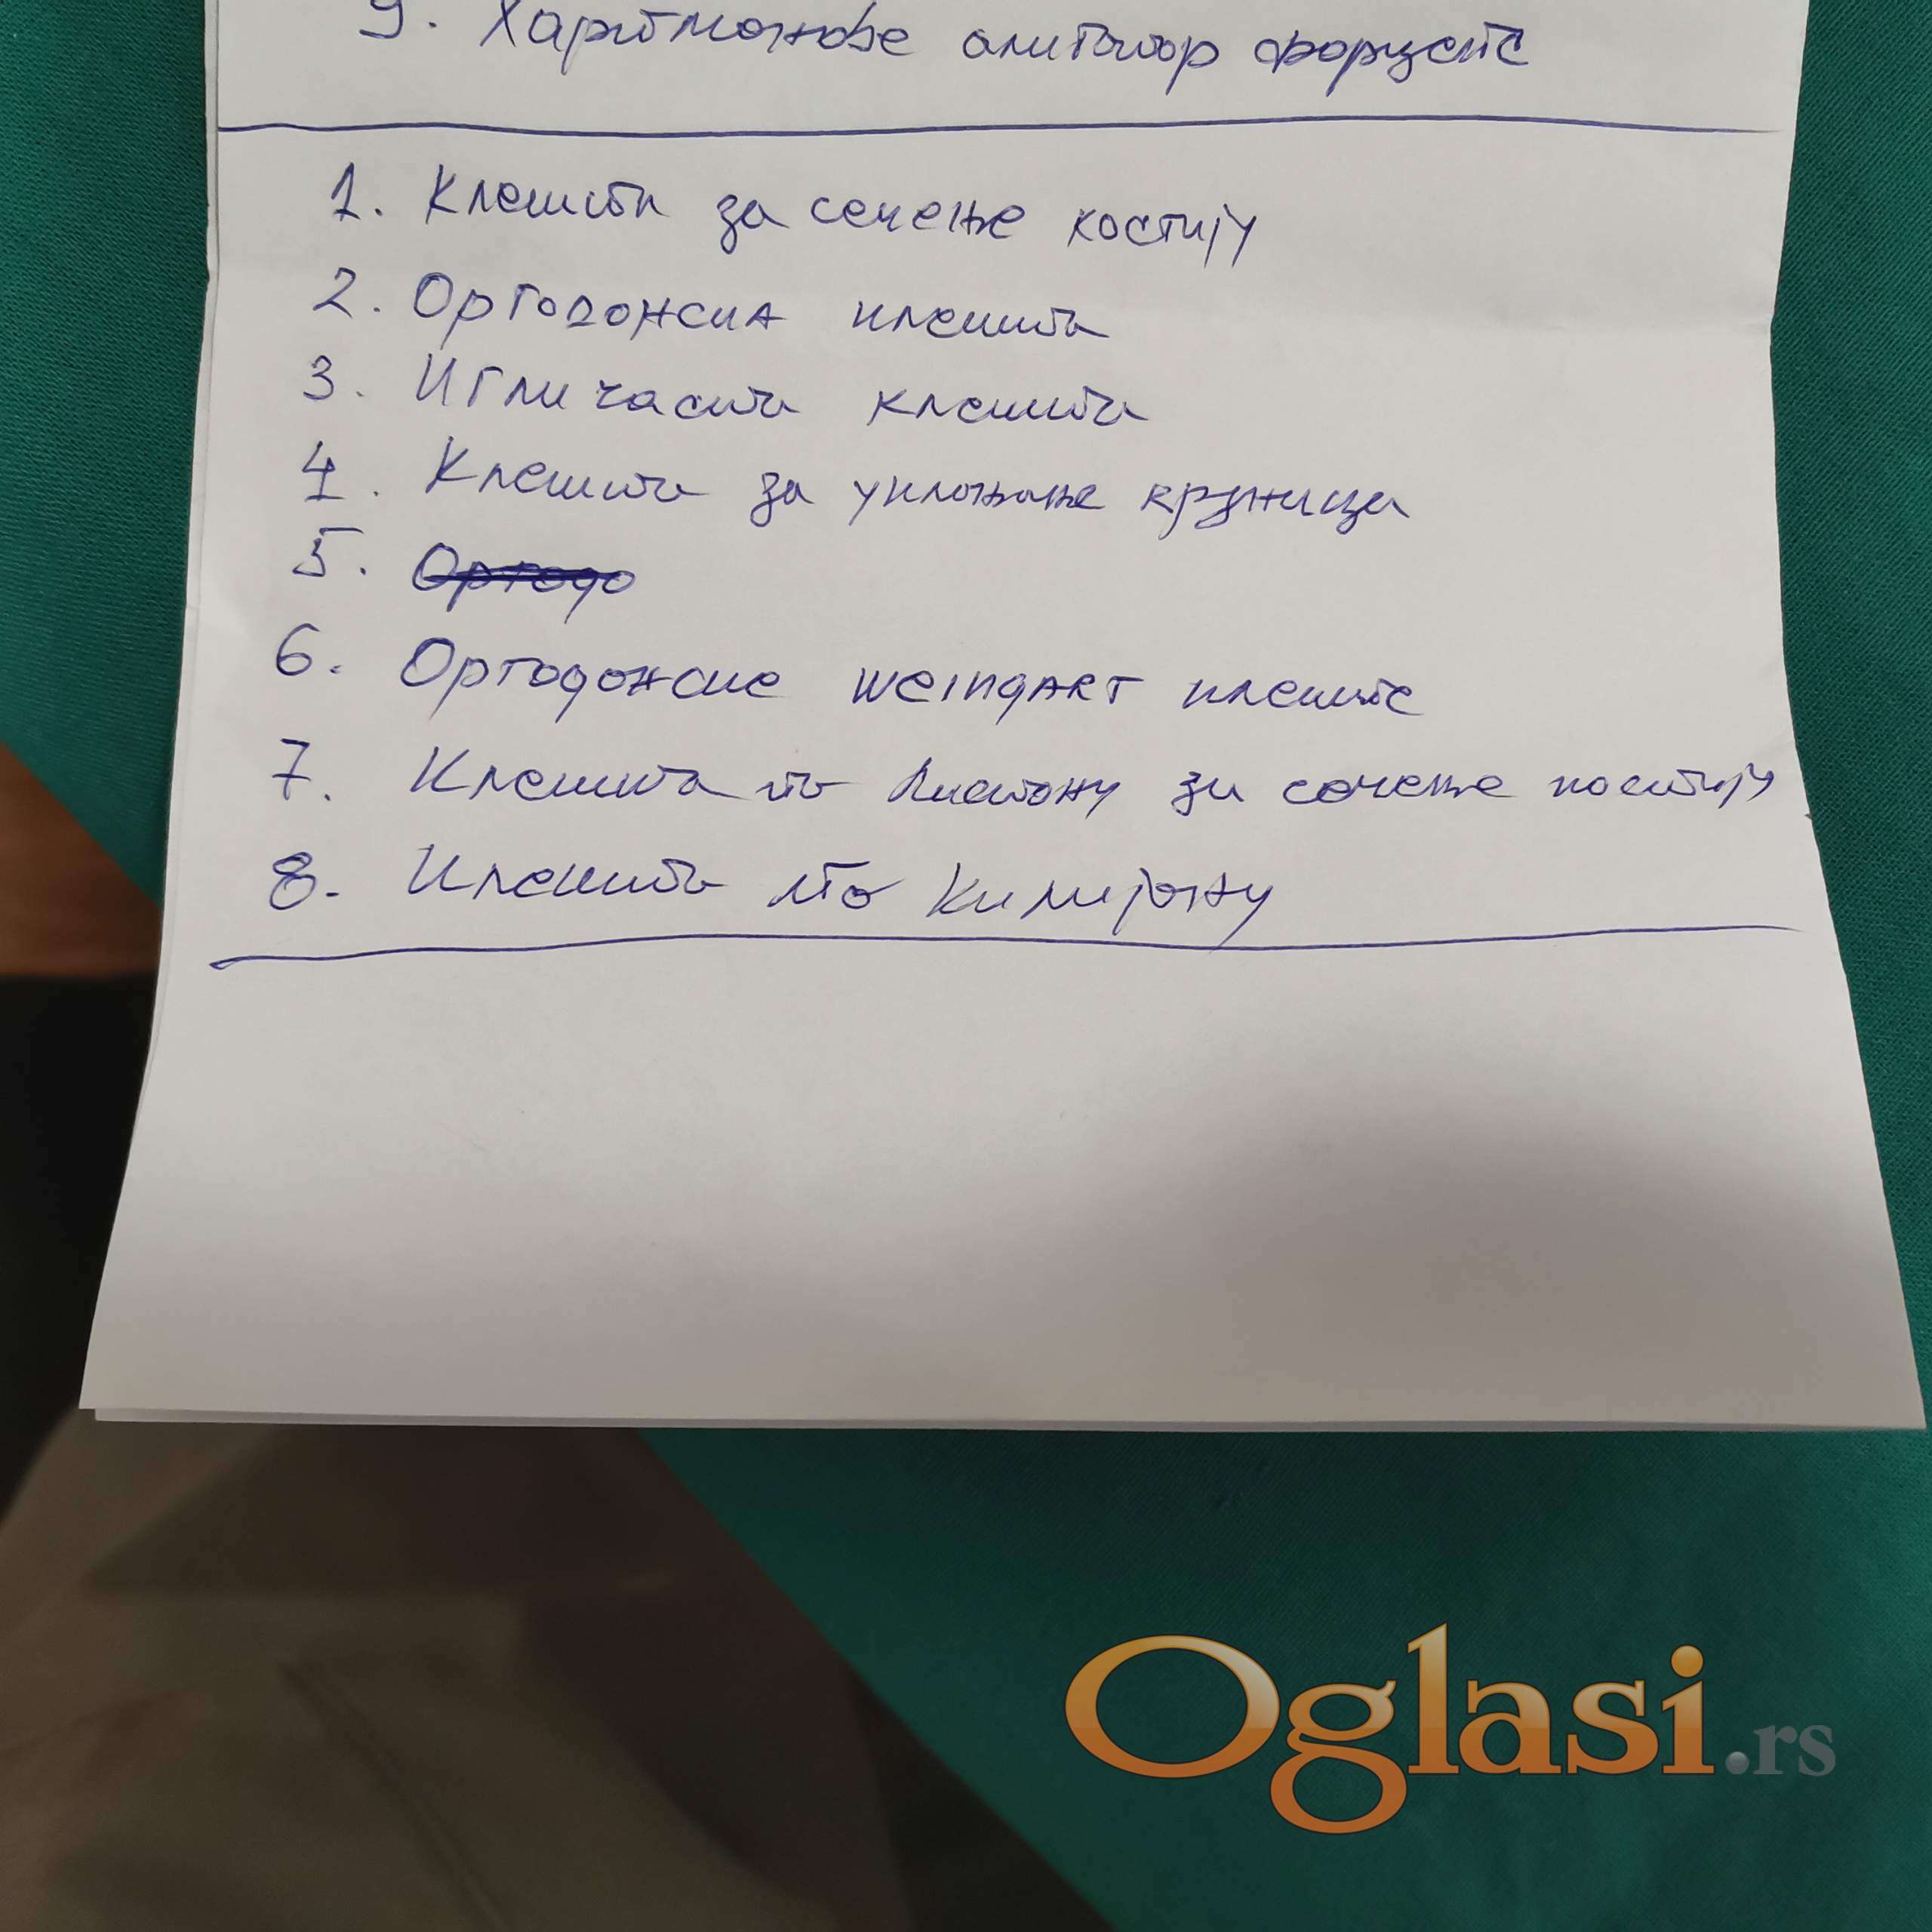 9. Хартманове алигатор форцепс
1. Клешта за сечење костију
2. Ортодонска клешта
3. Игличаста клешта
4. Клешта за уклањање круница
5. Ортодо
6. Ортодонске weingart клеште
7. Клешта по Листону за сечење костију
8. Клешта по
Oglasi.rs